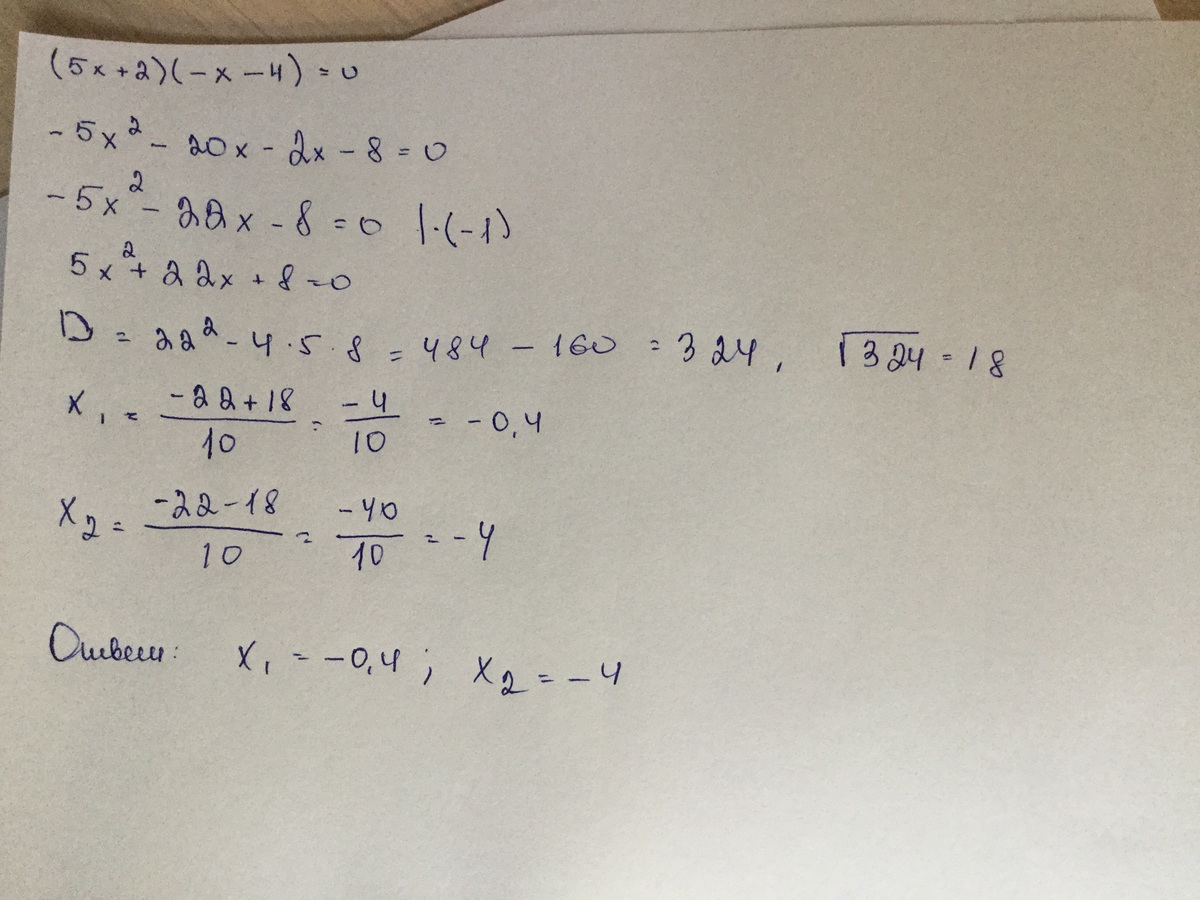 (5x+2)(-x-4)=0
-5x²-20x-2x-8=0
-5x²-22x-8=0 |·(-1)
5x²+22x+8=0
D = 22²-4·5·8=484-160=324, √324=18
x₁ = (-22+18)/10 = -4/10 = -0,4
x₂ = (-22-18)/10 = -40/10 = -4
Ответ: x₁=-0,4; x₂=-4